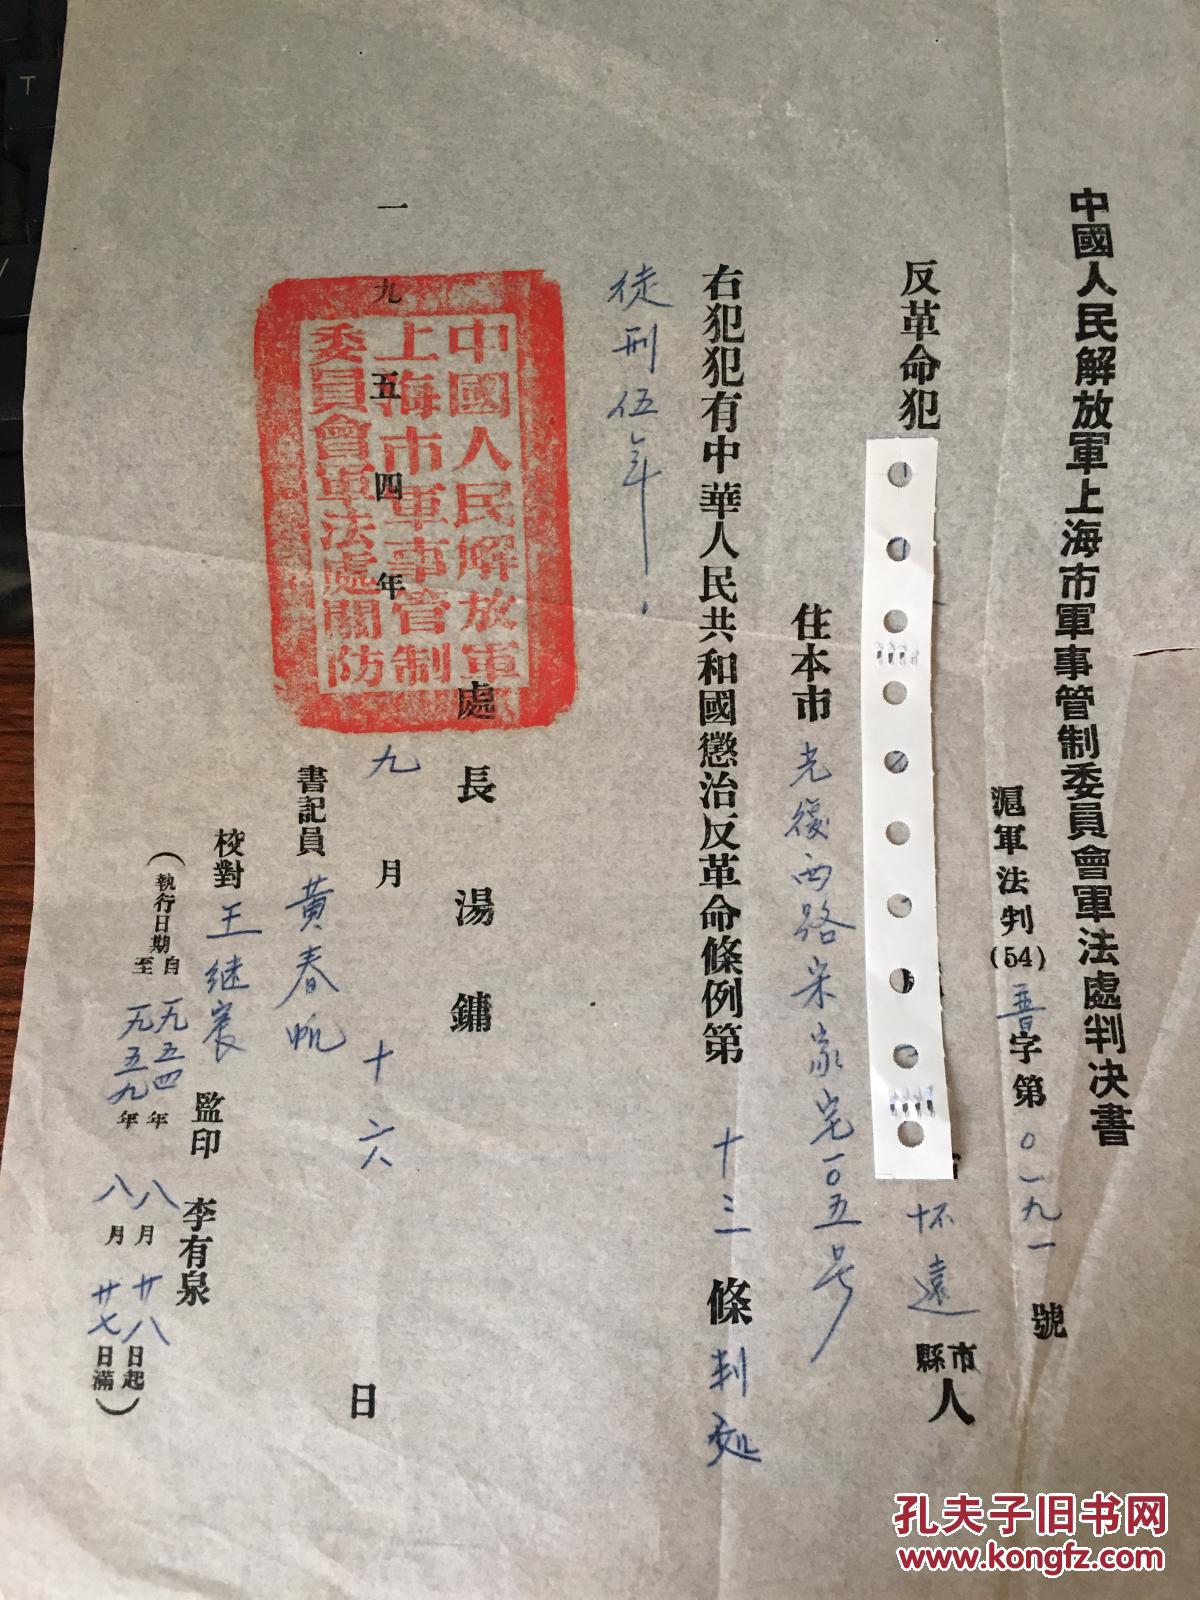 中國人民解放軍上海市軍事管制委員會軍法處判決書
滬軍法判(54)普字第〇一九一號
反革命犯
怀遠市縣人
住本市光復西路宋家宅一0五号
右犯犯有中華人民共和國懲治反革命條例第十三條判处
徒刑伍年.
處長湯鏞
一九五四年九月十六日
中國人民解放軍
上海市軍事管制
委員會軍法處關防
書記員黃春帆
校對王继宸
監印李有泉
(執行日期自一九五四年八月廿八日起
至一九五九年八月廿七日滿)
孔夫子旧书网
www.kongfz.com
T